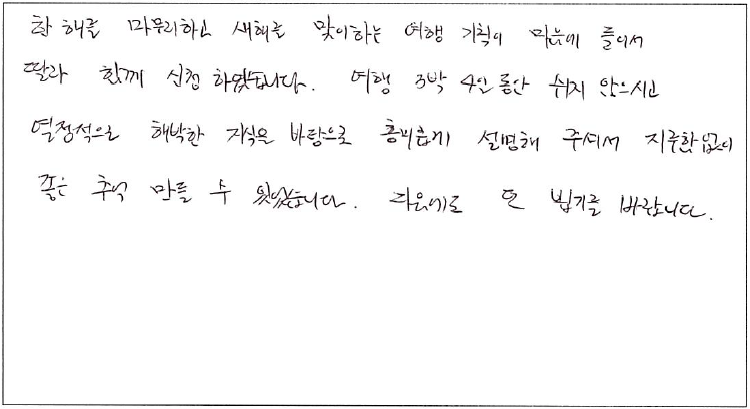 한 해를 마무리하고 새해를 맞이하는 여행 기획이 마음에 들어서
딸과 함께 신청 하였습니다. 여행 3박 4일 동안 쉬지 않으시고
열정적으로 해박한 지식을 바탕으로 흥미롭게 설명해 주셔서 지루함없이
좋은 추억 만들 수 있었습니다. 다음에도 또 뵙기를 바랍니다.